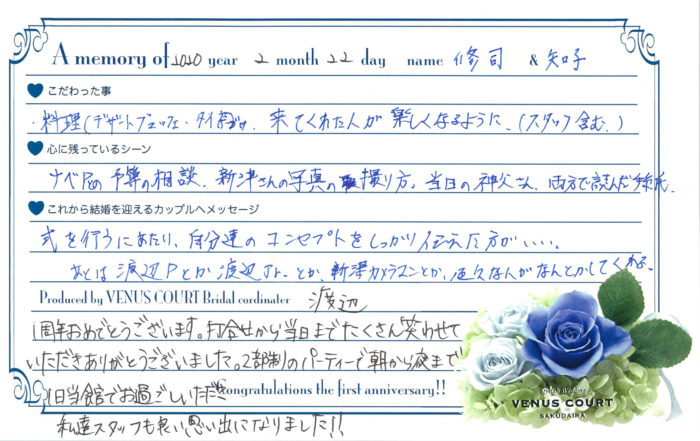 A memory of 2020 year 2 month 22 day name 修司 & 知子
こだわった事
・料理(デザートブュッフェ・ 来てくれた人が楽しくなるように。(スタッフ含む。)
心に残っているシーン
ナベPとの予算の相談、新津さんの写真の撮り方。当日の神父さん、両方で読んだ
これから結婚を迎えるカップルへメッセージ
式を行うにあたり、自分達のコンセプトをしっかり伝えた方がいい。
あとは渡辺Pとか渡辺Jr.とか、新津カメラマンとか、色々なんがなんとかしてくれる。
Produced by VENUS COURT Bridal cordinater 渡辺
1周年おめでとうございます。打合せから当日までたくさん笑わせて
いただきありがとうございました。2部制のパーティーで朝から夜まで
1日当館でお過ごしいただき
Congratulations the first anniversary!!
私達スタッフも良い思い出になりました!!
VENUS COURT
SAKUDAIRA